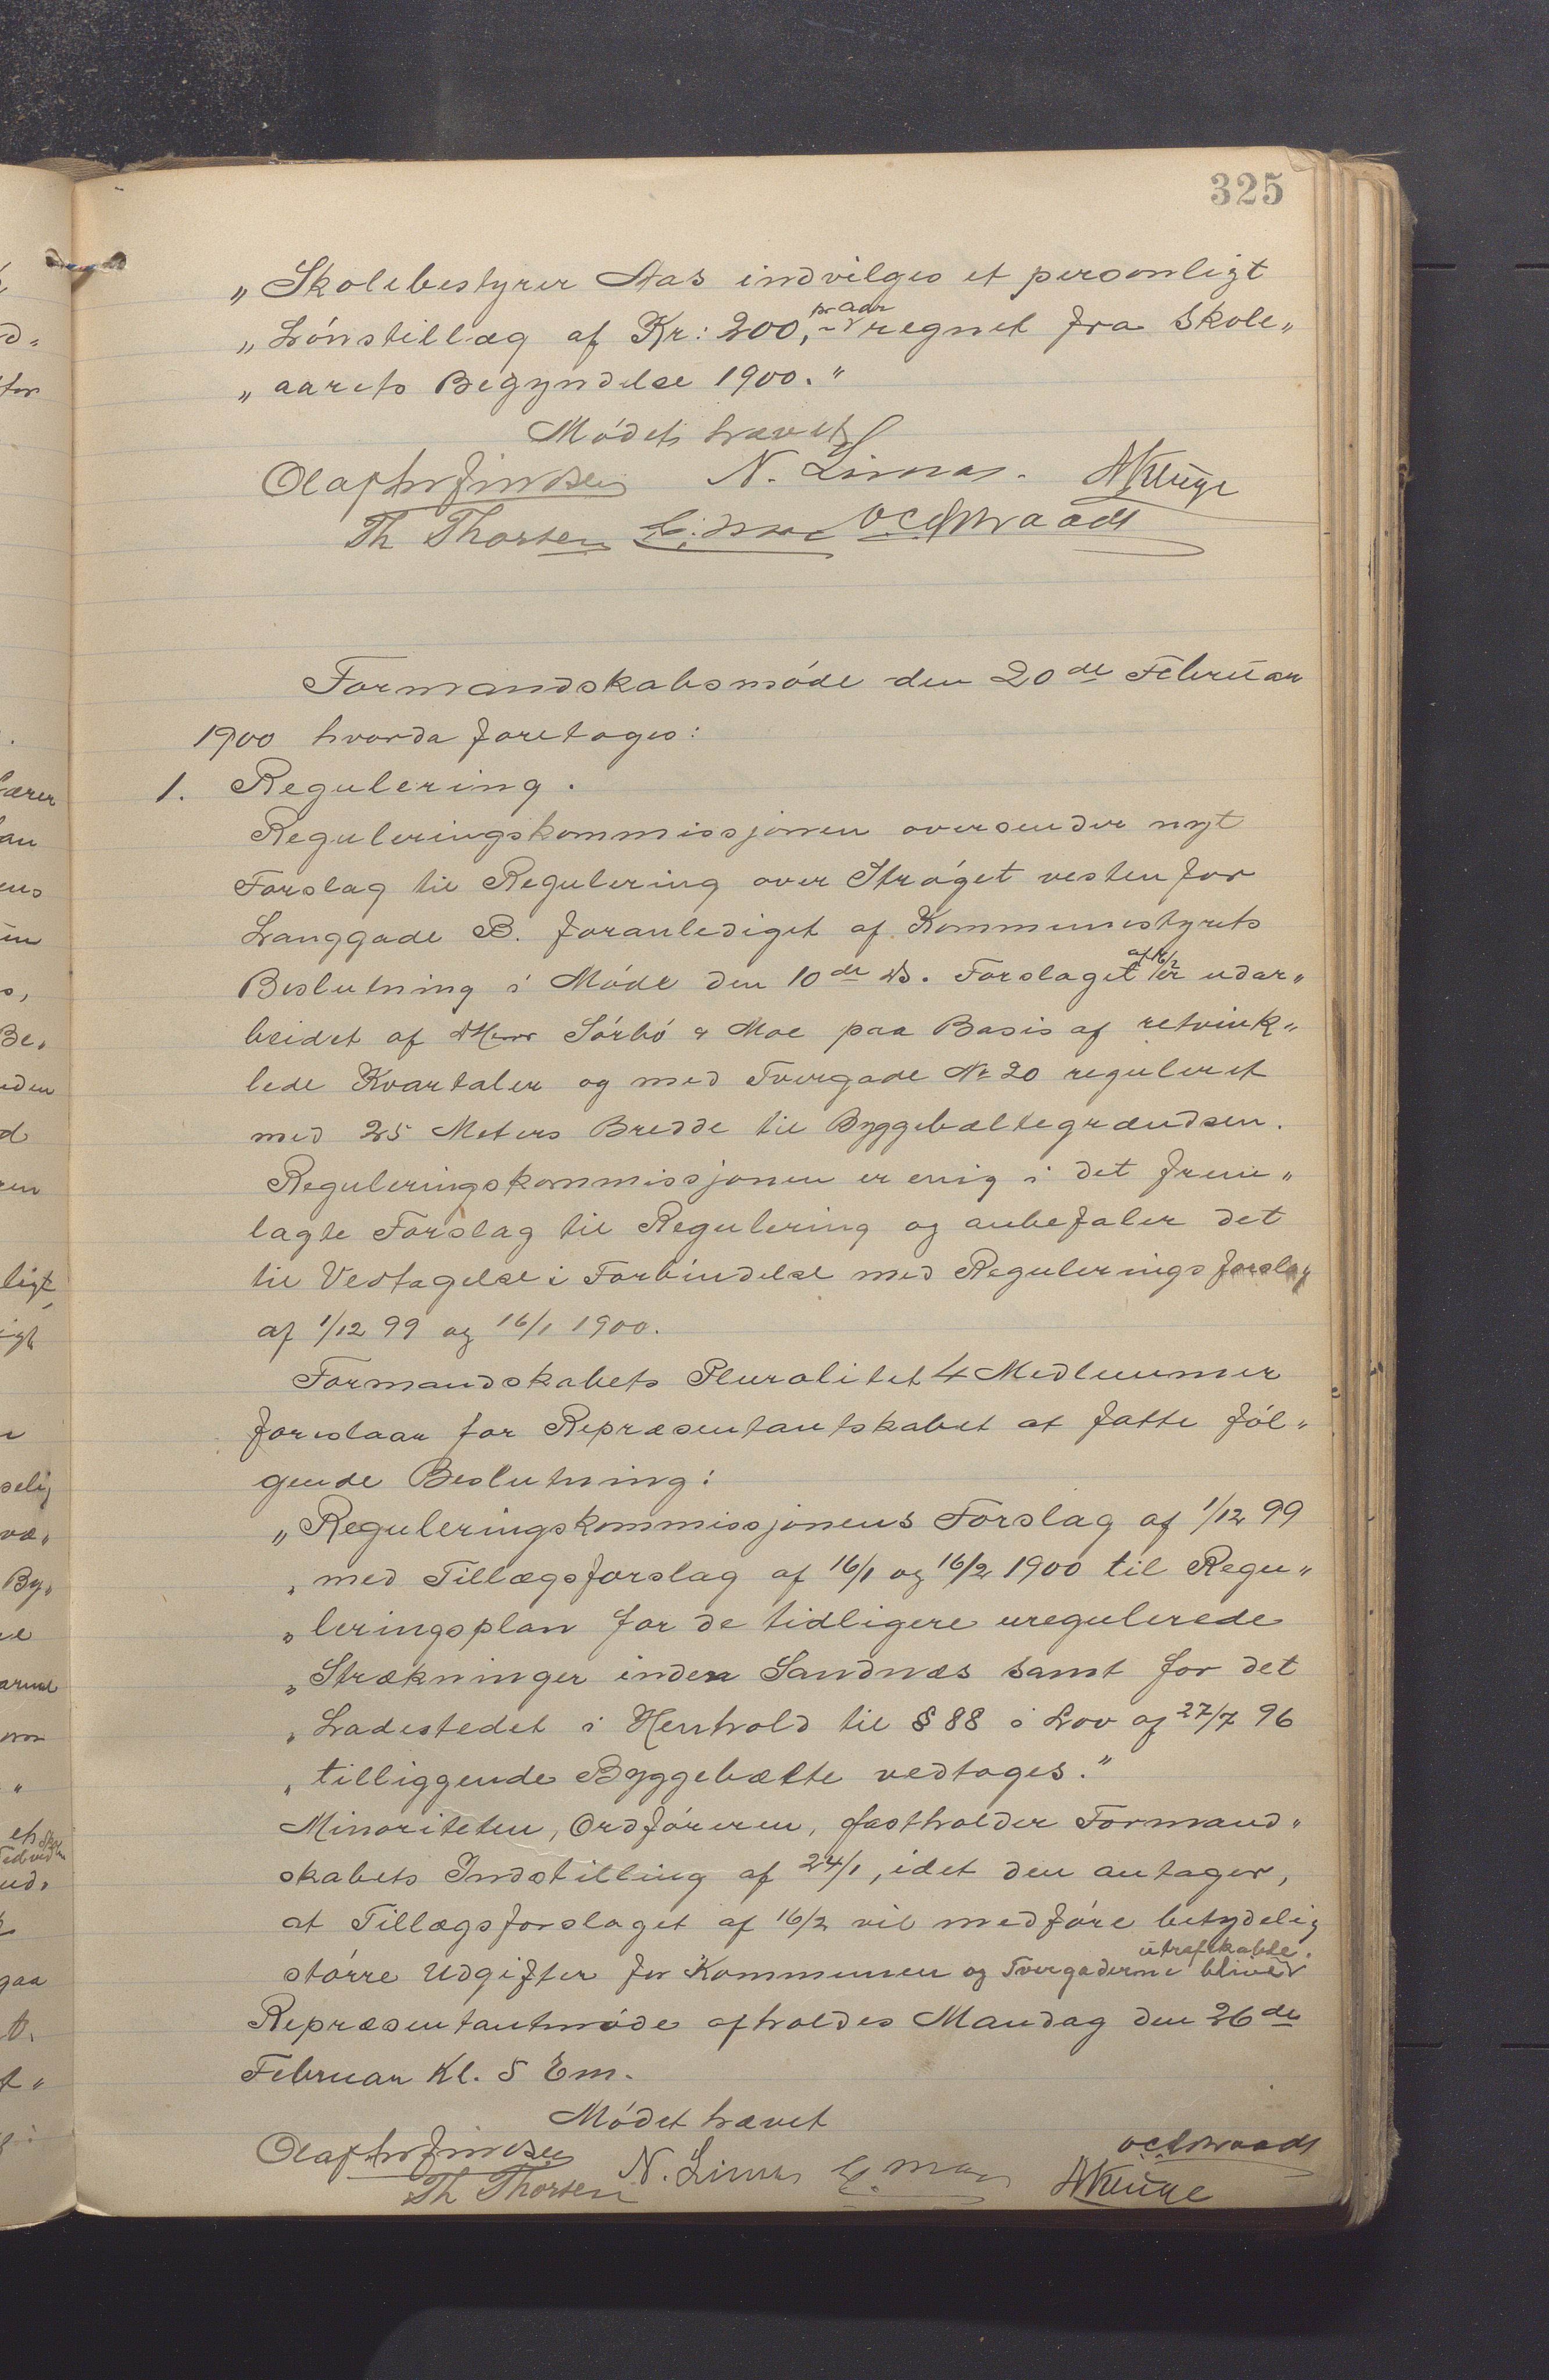 325
„Skolebestyrer Aas indvilges et personligt
„Lónstillæg af Kr: 200,- pr aar regnet fra Skole„
„aarets Begyndelse 1900."
Módet hævet
N. Limas.
Th Thorsen
Formandskabsmóde den 20de Februar
1900 hvorda foretoges:
1. Regulering.
Reguleringskommissjonen oversender nyt
Forslag til Regulering over Stróget vestenfor
Langgade B. foranlediget af Kommunestyrets
Beslutning i Móde den 10de ds. Forslaget af 16/2 er udar„
beidet af Sórbó & Moe paa Basis af retvink„
lede Kvartaler og med Tvergade No 20 reguleret
med 25 Meters Bredde til Byggebæltegrændsen.
Reguleringskommissjonen er enig i det frem„
lagte Forslag til Regulering og anbefaler det
til Vedtagelse i Forbindelse med Reguleringsforslag
af 1/12 99 og 16/1 1900.
Formandskabets Pluralitet 4 Medlemmer
foreslaar for Repræsentantskabet at fatte fól„
gende Beslutning:
„Reguleringskommissjonens Forslag af 1/12 99
„med Tillægsforslag af 16/1 og 16/2 1900 til Regu„
„leringsplan for de tidligere uregulerede
„Strækninger inden Sandnæs samt for det
„Ladestedet i Henhold til § 88 i Lov af 27/7 96
„tilliggende Byggebælte vedtages."
Minoriteten, Ordfóreren, fastholder Formand„
skabets Indstilling af 24/1, idet den antager,
at Tillægsforslaget af 16/2 vil medfóre betydelig
stórre Udgifter for Kommunen og Tvergaderne bliver utrafikable.
Repræsentantmóde afholdes Mandag den 26de
Februar Kl. 5 Em.
Módet hævet
Th Thorsen N. Limas